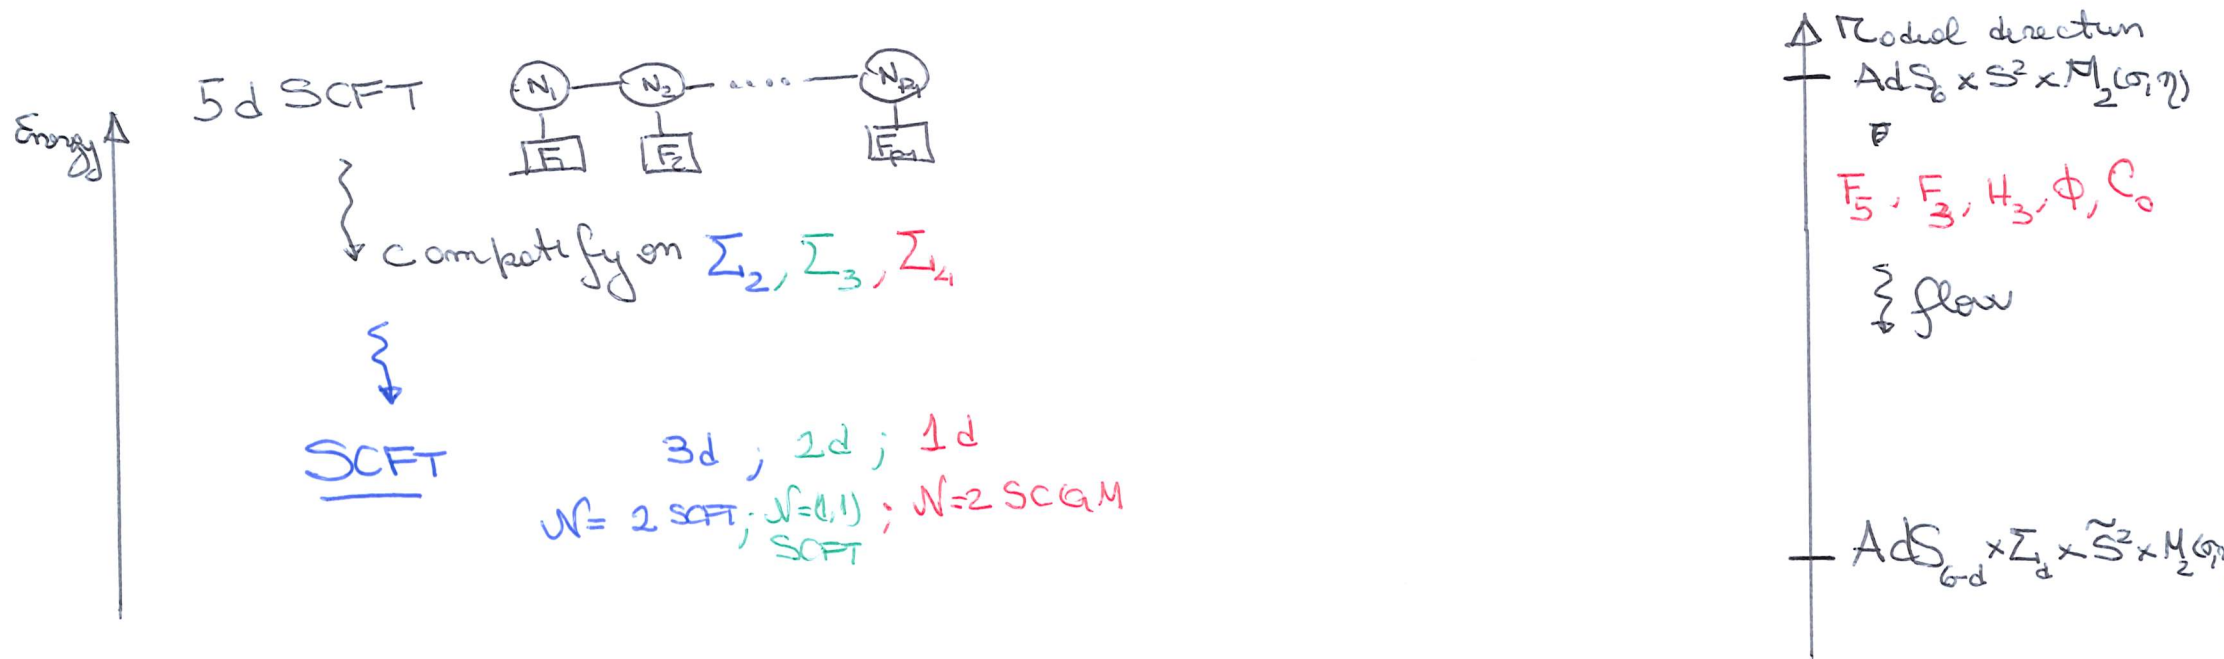 5d SCFT
N₁ N₂ .... N_{P-1}
F₁ F₂ F_{P-1}
Energy
compatify on Σ₂, Σ₃, Σ₄
SCFT
3d ; 2d ; 1d
N= 2 SCFT; N=(1,1) SCFT ; N=2 SCQM
Radial direction
AdS₆ × S² × M₂(σ,η)
F₅, F₃, H₃, Φ, C₀
flow
AdS_{6-d} × Σ_d × S̃² × M₂(σ,